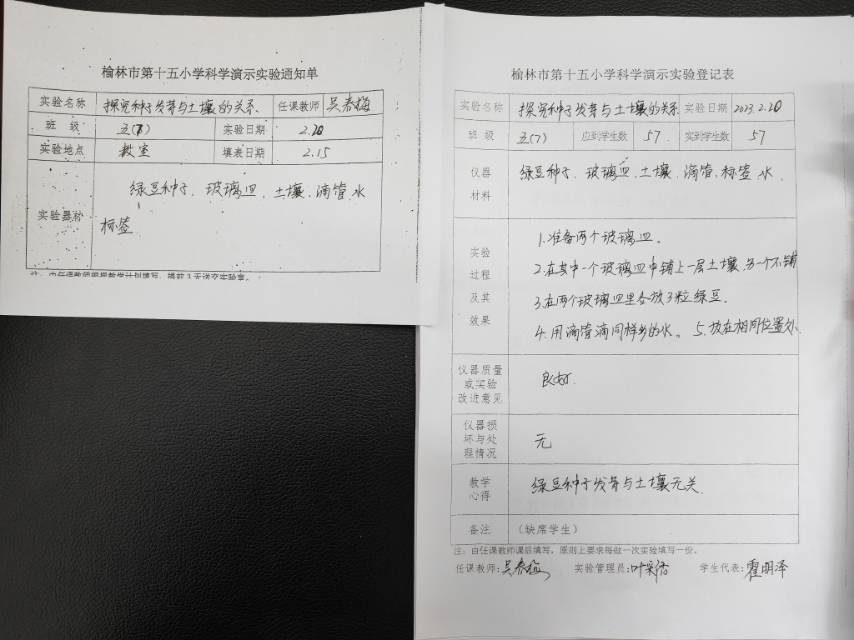 榆林市第十五小学科学演示实验通知单
实验名称 探究种子发芽与土壤的关系 任课教师 吴春梅
班 级 五(7) 实验日期 2.20
实验地点 教室 填表日期 2.15
实验器材 绿豆种子、玻璃皿、土壤、滴管、水
标签
注:由任课教师根据教学计划填写,提前3天送交实验室。
榆林市第十五小学科学演示实验登记表
实验名称 探究种子发芽与土壤的关系 实验日期 2023.2.20
班 级 五(7) 应到学生数 57 实到学生数 57
仪器
材料
绿豆种子、玻璃皿、土壤、滴管、标签、水
实验
过程
及其
效果
1.准备两个玻璃皿。
2.在其中一个玻璃皿中铺上一层土壤,另一个不铺
3.在两个玻璃皿里各放3粒绿豆。
4.用滴管滴同样多的水。 5.放在相同位置处
仪器质量
或实验
改进意见
良好
仪器损
坏与处
理情况
无
教学
心得
绿豆种子发芽与土壤无关
备注 (缺席学生)
注:由任课教师课后填写,原则上要求每做一次实验填写一份。
任课教师:吴春梅 实验管理员: 学生代表:霍明泽